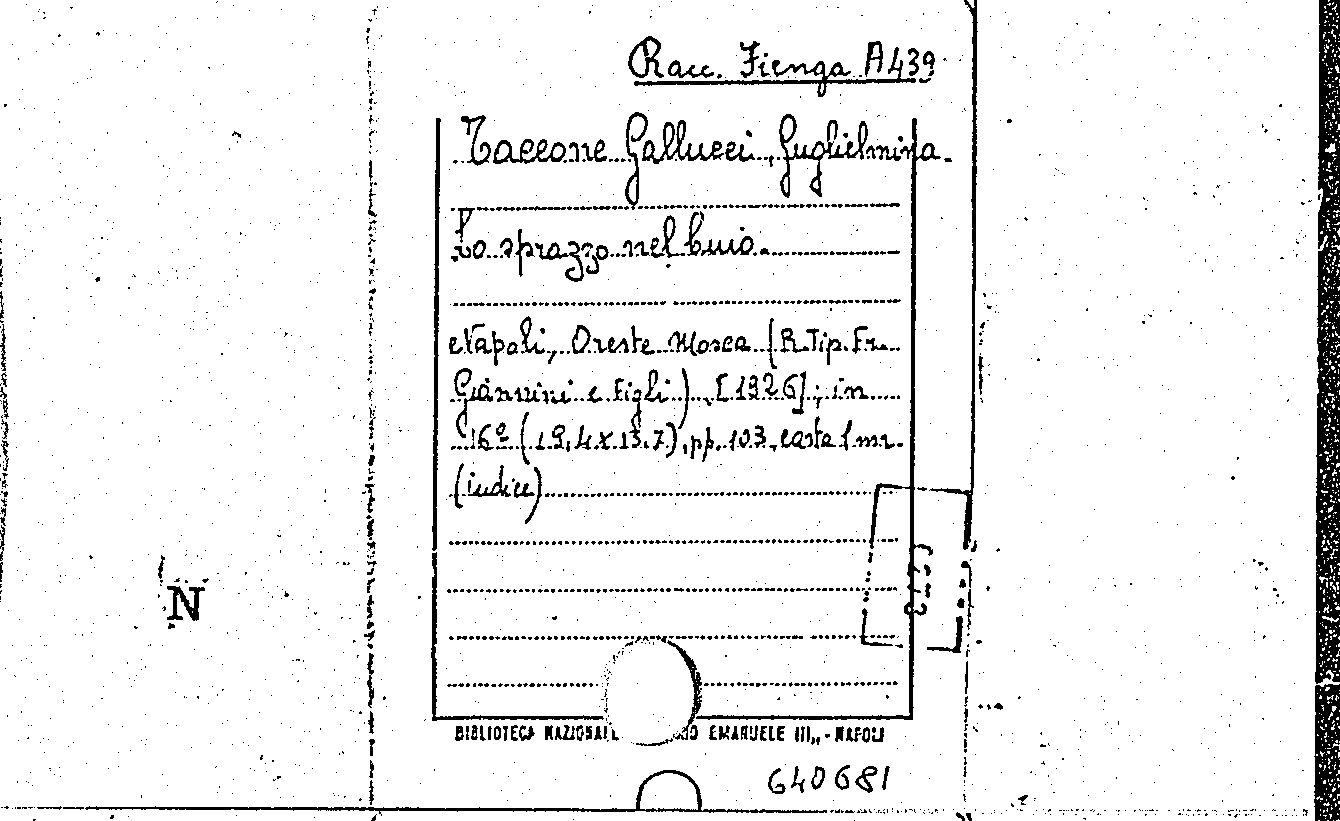 Racc. Fienga A439
Taccone Gallucci, Guglielmina.
Lo sprazzo nel buio.
Napoli, Oreste Mosca (R. Tip. Fr.
Giannini e Figli), [1926]; in
16º (19,4x13.7), pp. 103, carta 1 nn.
(indice)
N
BIBLIOTECA NAZIONALE EMANUELE III,, - NAPOLI
640681